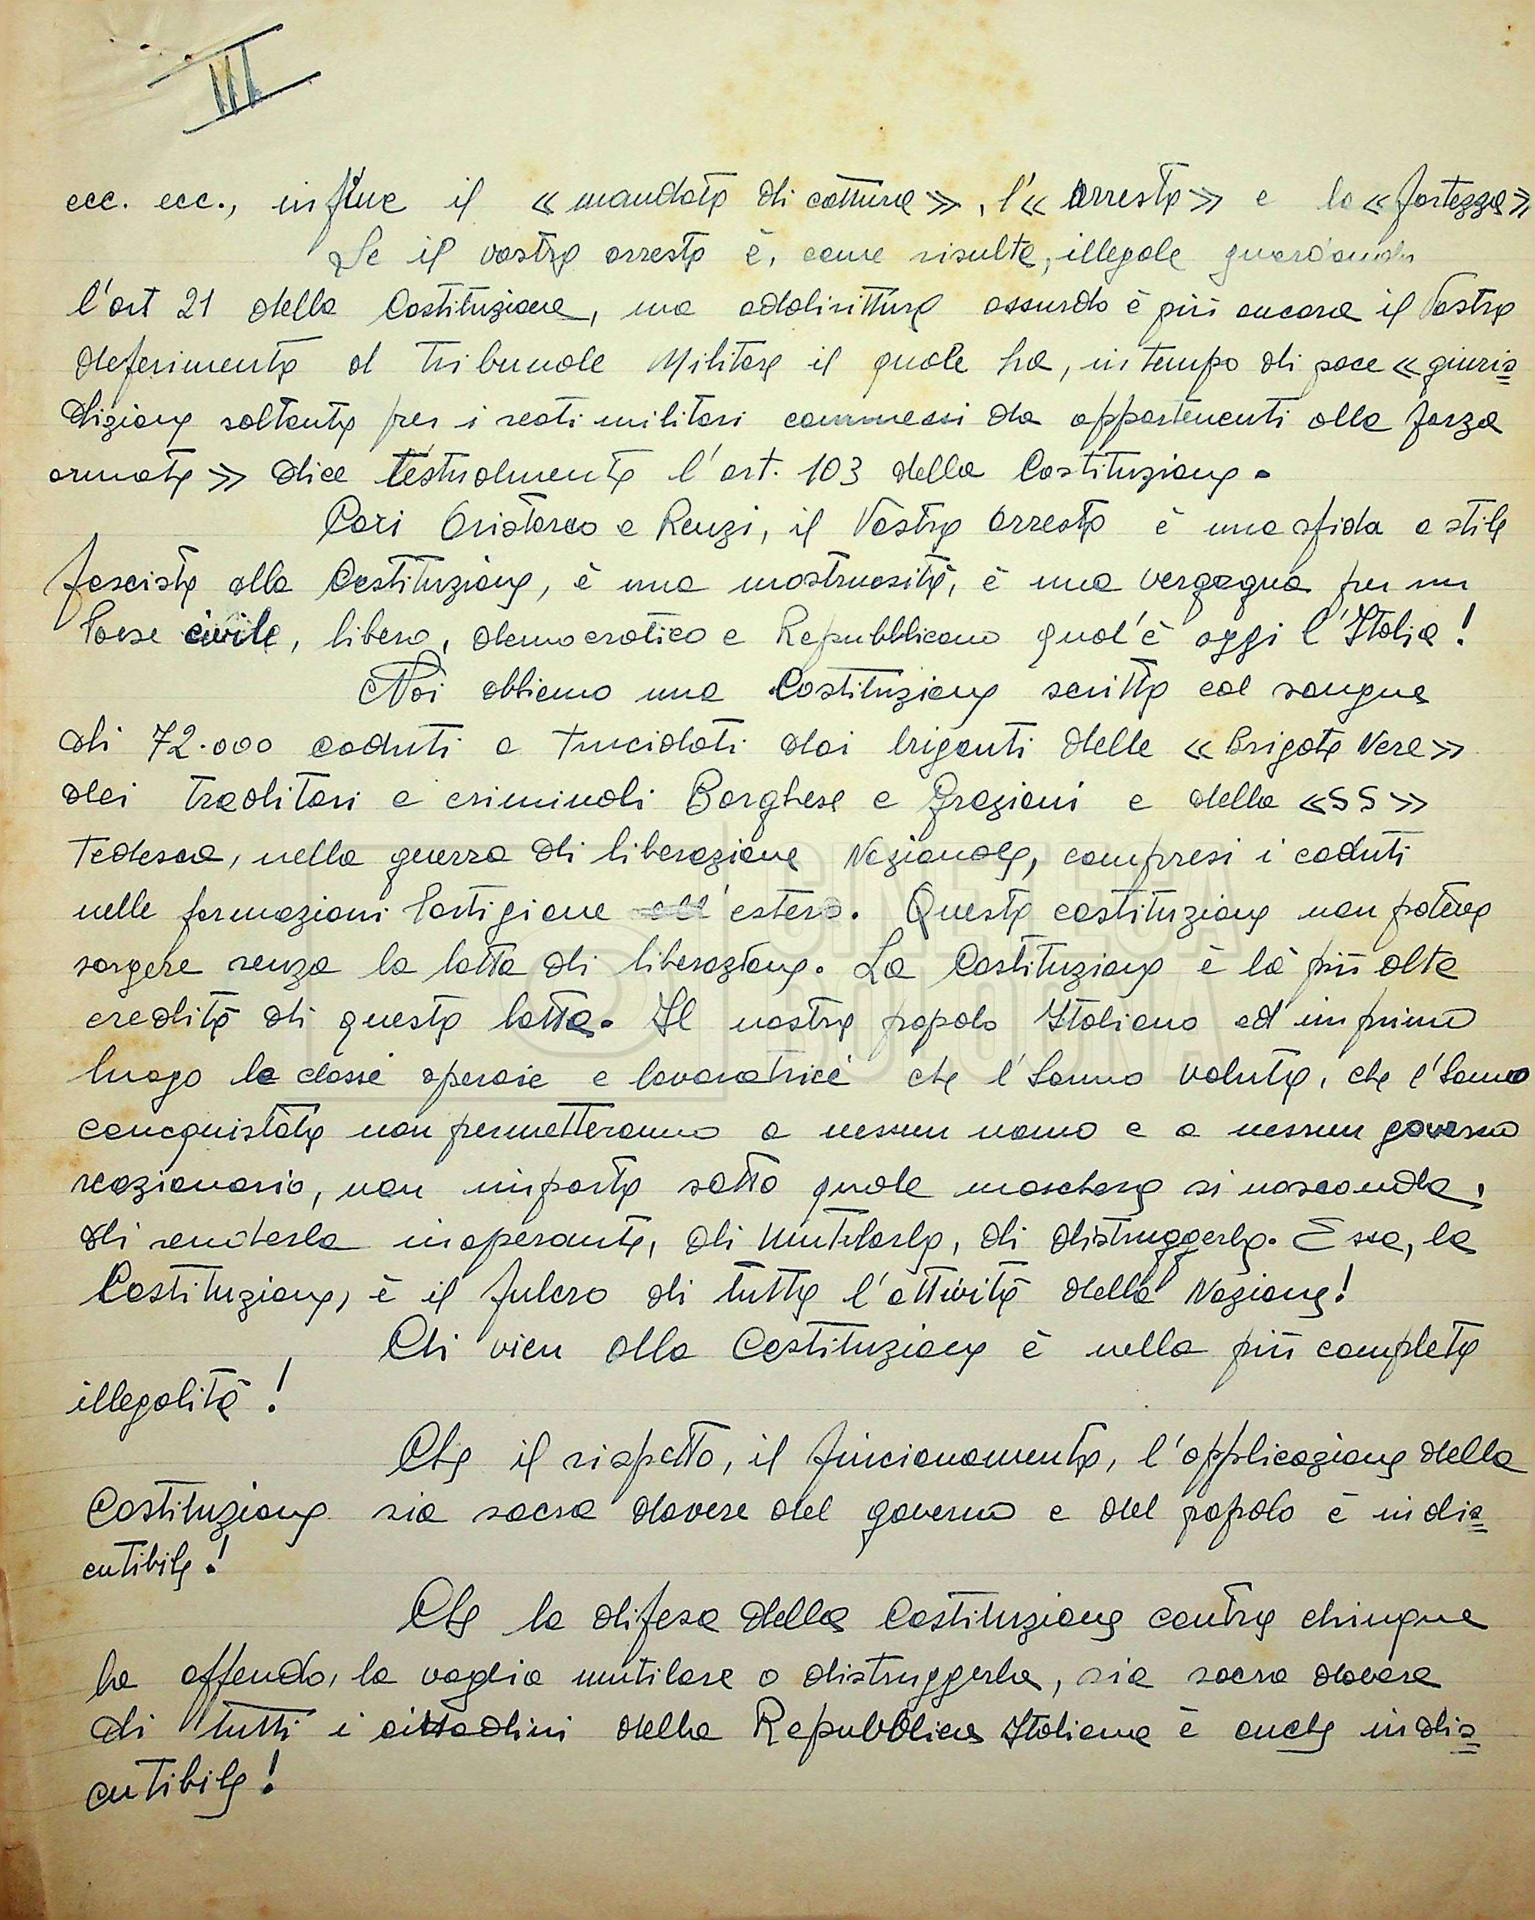 III
ecc. ecc., infine il « mandato di cattura », l'« arresto » e la « fortezza »
Se il vostro arresto è, come risulta, illegale guardando
l'art 21 della Costituzione, ma addirittura assurdo è più ancora il Vostro
deferimento al Tribunale Militare il quale ha, in tempo di pace « giuris=
dizione soltanto per i reati militari commessi da appartenenti alle forze
armate » dice testualmente l'art. 103 della Costituzione.
Cari Aristarco e Renzi, il Vostro arresto è una sfida a stile
fascista alla Costituzione, è una mostruosità, è una vergogna per un
Paese civile, libero, democratico e Repubblicano qual'è oggi l'Italia!
Noi abbiamo una Costituzione scritta col sangue
di 72.000 caduti e trucidati dai briganti delle « Brigate Nere »
dei traditori e criminali Borghese e Graziani e della « SS »
Tedesca, nella guerra di liberazione Nazionale, compresi i caduti
nelle formazioni Partigiane all'estero. Questa costituzione non poteva
sorgere senza la lotta di liberazione. La Costituzione è la più alta
eredità di questa lotta. Il nostro popolo Italiano ed in primo
luogo le classi operaie e lavoratrici che l'hanno voluta, che l'hanno
conquistata non permetteranno a nessun uomo e a nessun governo
reazionario, non importa sotto quale maschera si nasconda,
di renderla inoperante, di mutilarla, di distruggerla. Essa, la
Costituzione, è il fulcro di tutta l'attività della Nazione!
Chi vien alla Costituzione è nella più completa
illegalità!
Che il rispetto, il funcionamento, l'applicazione della
Costituzione sia sacro dovere del governo e del popolo è indis=
cutibile!
Che la difesa della Costituzione contro chiunque
la offenda, la voglia mutilare o distruggerla, sia sacro dovere
di tutti i cittadini della Repubblica Italiana è anche indis=
cutibile!
CINETECA
BOLOGNA